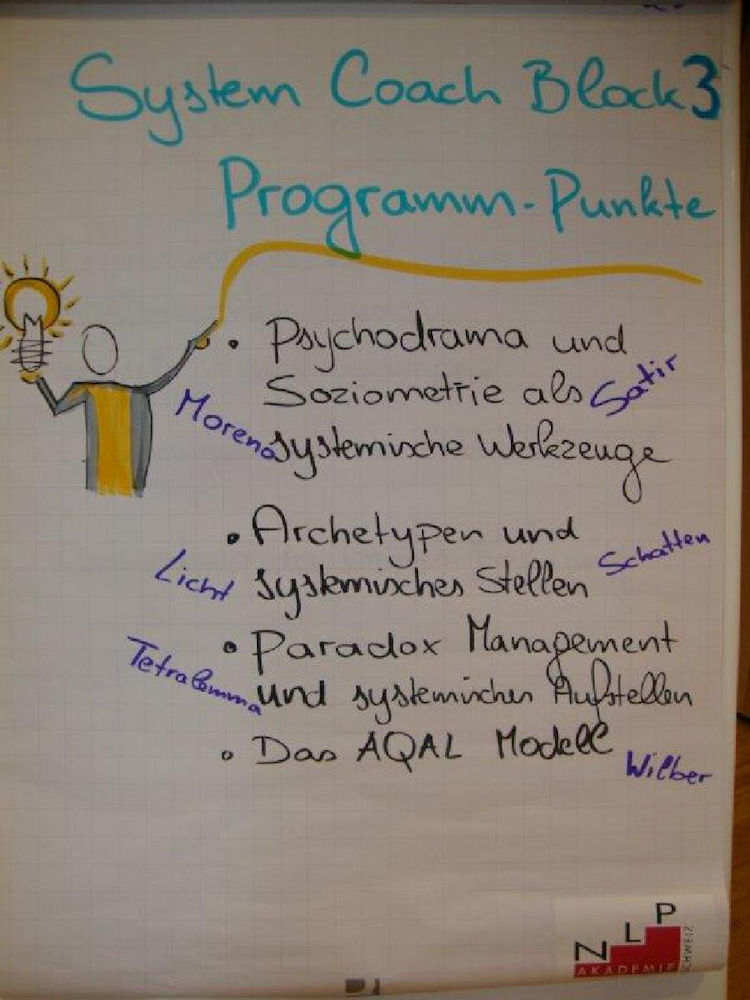 System Coach Block 3
Programm-Punkte
• Psychodrama und
Soziometrie als Satir
Moreno systemische Werkzeuge
• Archetypen und
Schatten
Licht systemisches Stellen
• Paradox Management
Tetralemma und systemisches Aufstellen
• Das AQAL Modell
Wilber
NLP
AKADEMIE SCHWEIZ